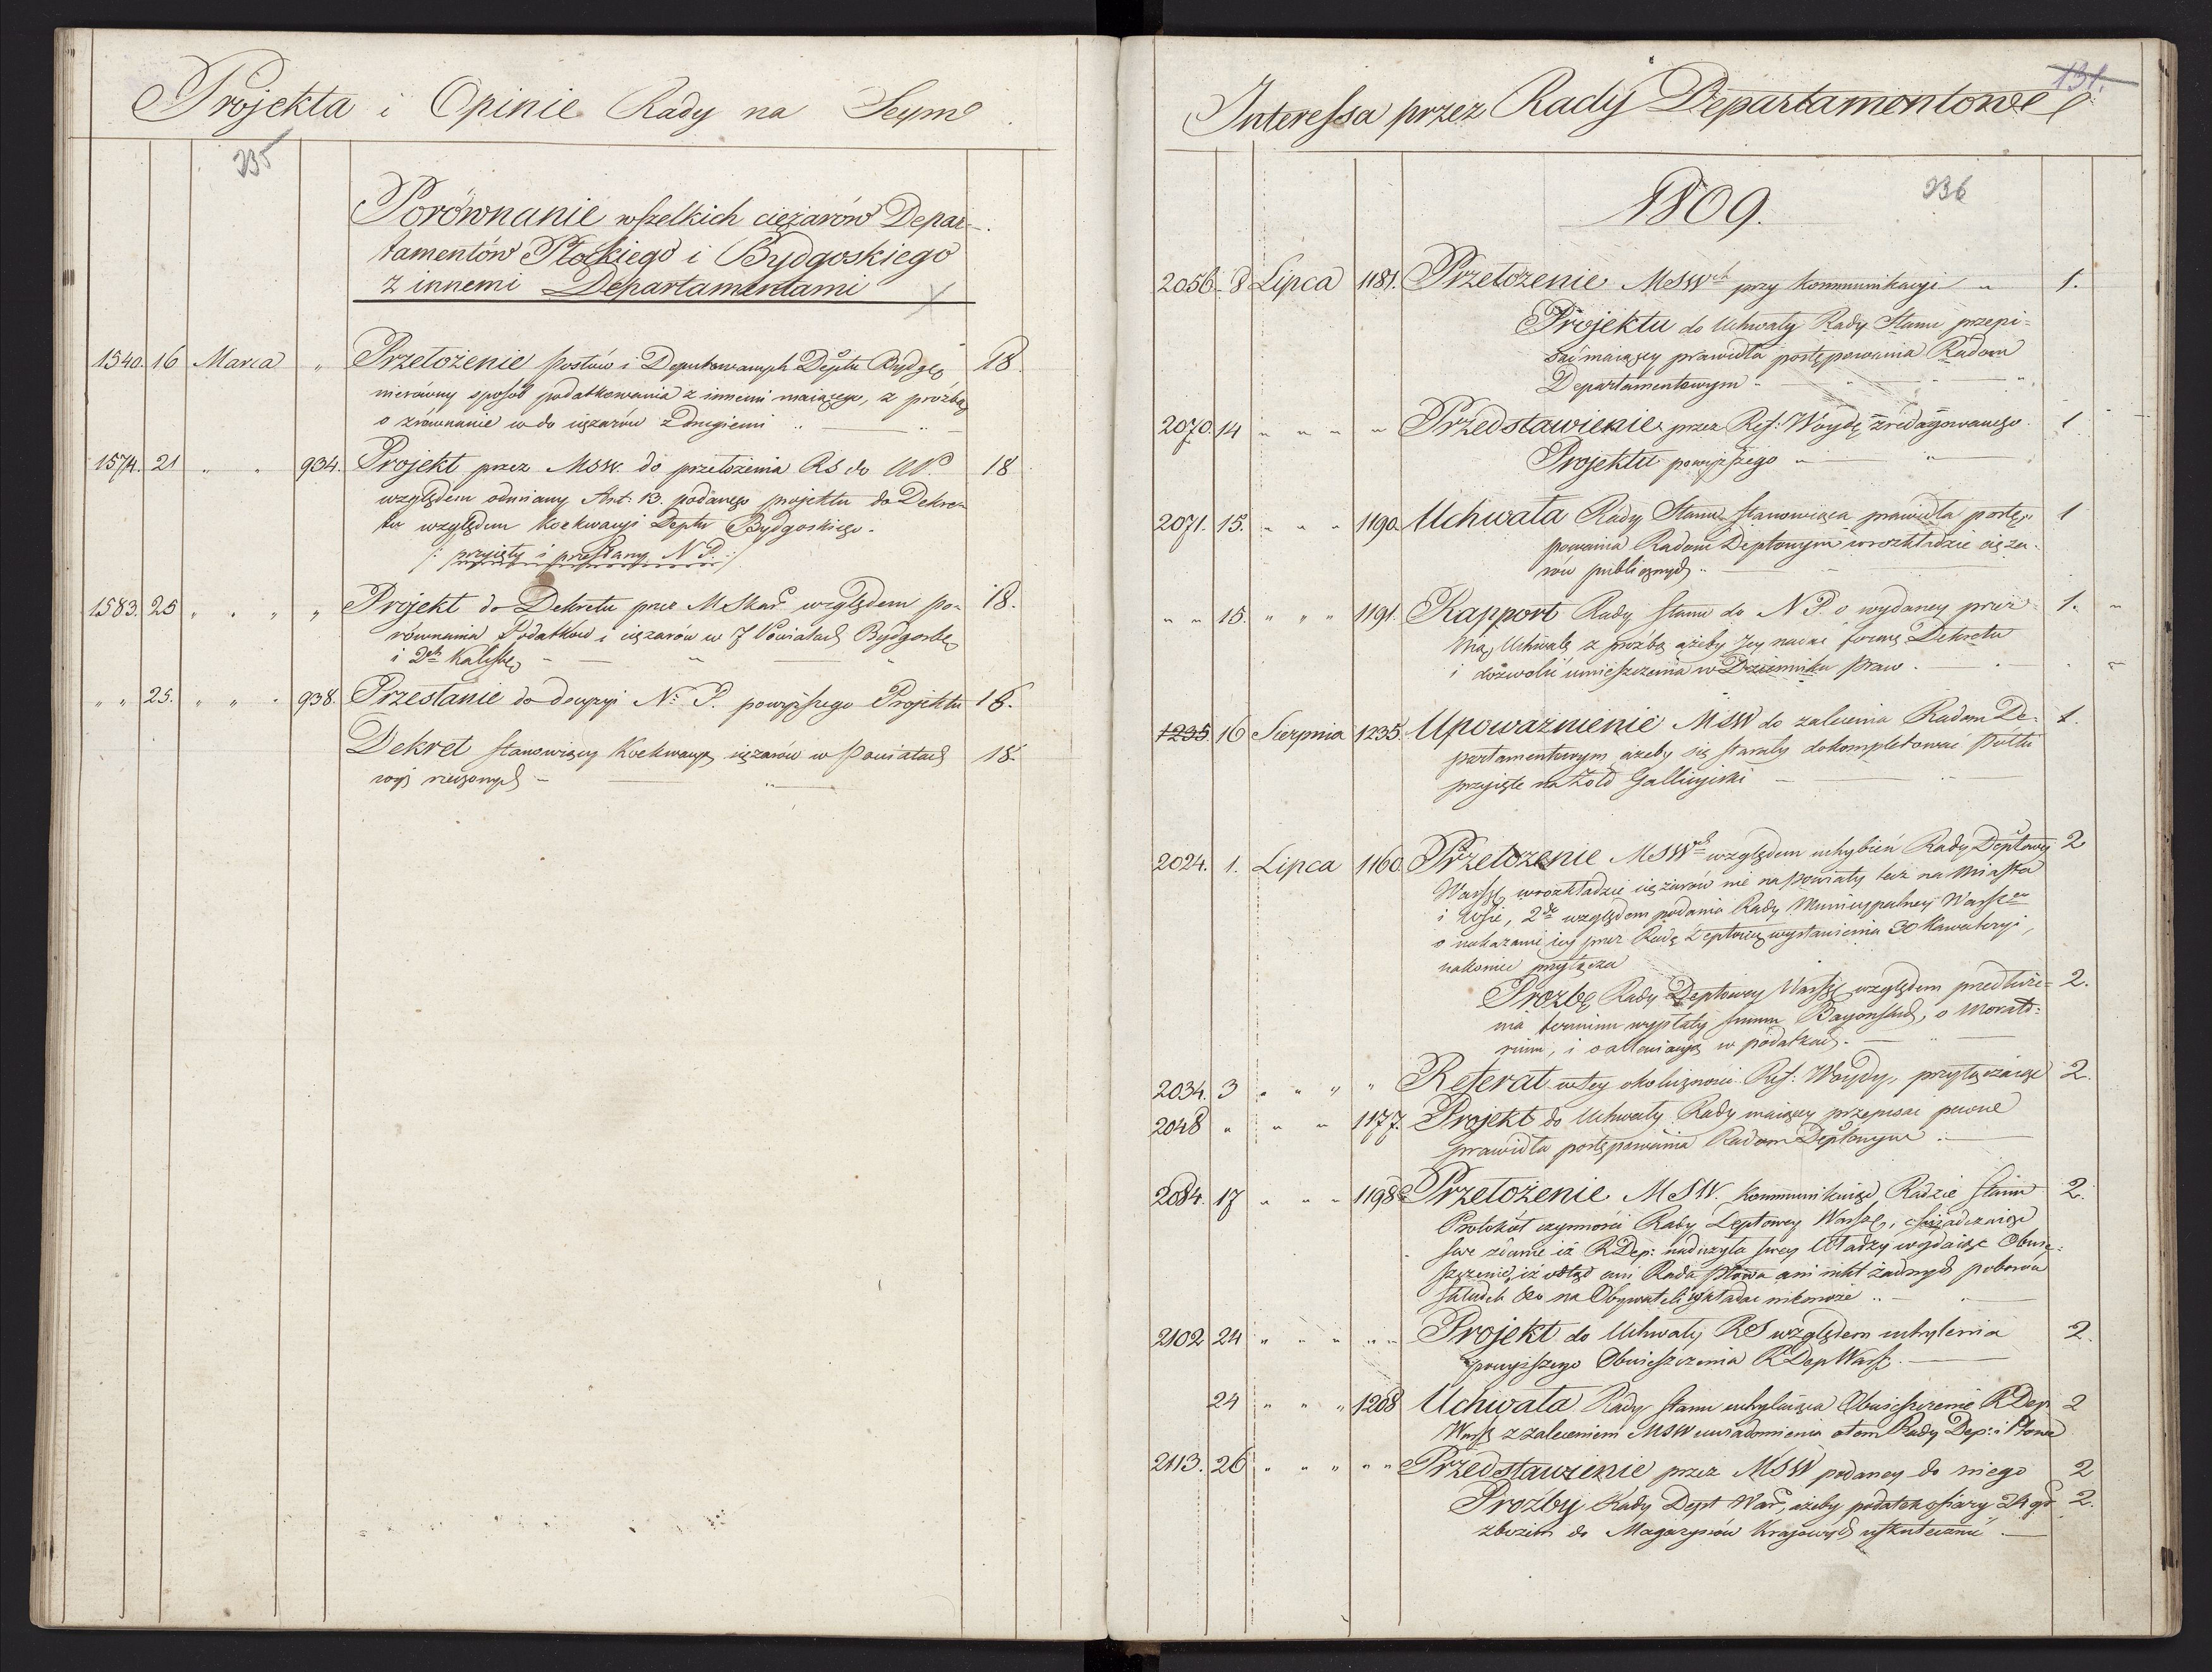 Projekta i Opinie Rady na Seym
235
Porównanie wszelkich ciężarów Depar-
tamentów Płockiego i Bydgoskiego
z innemi Departamentami
1540. 16 Marca " Przełożenie Posłów i Deputowanych Deptu Bydgo 18
nierówny sposób podatkowania z innemi maiącego, z prożbą
o zrównanie w do ciężarów z drugiemi
1574. 21 " " 934. Projekt przez MSW. do przełożenia RS do NP. 18
względem odmiany Art: 13. podanego projektu do Dekre-
tu względem Koekwacyi Deptu Bydgoskiego.
/: przyięty i przesłany N.P. :/
1583. 25 " " " " Projekt do Dekretu prze MSkar względem po- 18.
równania Podatków i ciężarów w 7 Powiatach Bydgoskie
i 2ch Kalisk
" " 25. " " " 938. Przesłanie do decyzyi N: P. powyższego Projektu 18.
Dekret stanowiący Koekwacyą ciężarów w Powiatach 18.
wyż rzeczonych
131.
Interessa przez Rady Departamentowe
236
1809.
2056. 8 Lipca 1181. Przełożenie MSW przy kommunikacyi " 1.
Projektu do Uchwały Rady Stanu przepi-
sać maiący prawidła postępowania Radom
Departamentowym
2070. 14 " " " " Przedstawienie przez Ref: Woydę zredagowanego 1
Projektu powyższego
2071. 15. " " " 1190. Uchwała Rady Stanu stanowiąca prawidła postę- 1
powania Radom Deptowym w rozkładzie cięża-
rów publicznych
" " 15. " " " 1191. Rapport Rady Stanu do N.P. o wydaney przez 1.
Nią Uchwale z prożbą ażeby Jey nadać formę Dekretu
i dozwolić umieszczenia w Dzienniku Praw.
1235. 16 Sierpnia 1235. Upoważnienie MSW do zalecenia Radom De- 1.
partamentowym ażeby się starały dokompletować Pułki
przyięte na Żołd Gallicyiski
2024. 1. Lipca 1160. Przełożenie MSW względem uchybień Rady Deptowey 2
Warsz w rozkładzie ciężarów nie na Powiaty lecz na Miasta
i Wsie, 2do względem podania Rady Municypalney Warsk
o nakazanie iey przez Radę Deptową wystawienia 30 Kawaleryi,
nakoniec przyłącza
Prożbę Rady Deptowey Warsz względem przedłuże- 2.
nia terminu wypłaty summ Bayońskich, o Morato-
rium, i o allewiacyą w podatkach.
2034. 3 " " " " Referat w tey okoliczności Ref: Woydy, przyłączaiąc 2.
2048 " " " 1177. Projekt do Uchwały Rady maiący przepisać pewne
prawidła postępowania Radom Deptowym
2084. 17 " " " 1198 Przełożenie MSW. kommunikuiąc Radzie Stanu 2.
Protokół czynności Rady Deptowey Warsz, oświadczaiąc
swe zdanie iż R Dep: nadużyła swey Władzy wydaiąc Obwie-
szczenie, iż odtąd ani Rada Ptowa ani nikt żadnych poborów
składek &o na Obywateli wkładać niemoże
2102 24 " " " " " Projekt do Uchwały RS względem uchylenia 2.
powyższego Obwieszczenia R Dep Warsz.
24 " " " 1208 Uchwała Rady Stanu uchylaiąca Obwieszczenie R Dep 2
Warsz z zaleceniem MSW uwiadomienia o tem Rady Dep: i Ptowe
2113. 26 " " " " " Przedstawienie przez MSW podaney do niego 2
Prożby Rady Dept War, ażeby podatek ofiary 24 gr. 2.
zbożem do Magazynów Krajowych uskutecznić